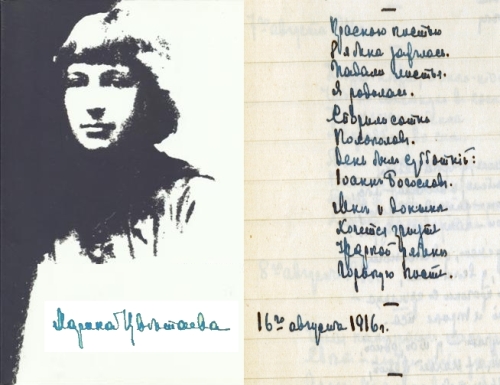 Красною кистью
Рябина зажглась.
Падали листья.
Я родилась.
Спорили сотни
Колоколов.
День был субботній:
Іоанн Богослов.
Мнѣ и донынѣ
Хочется грызть
Жаркой рябины
Горькую кисть.
16го августа 1916г.
Марина Цвѣтаева